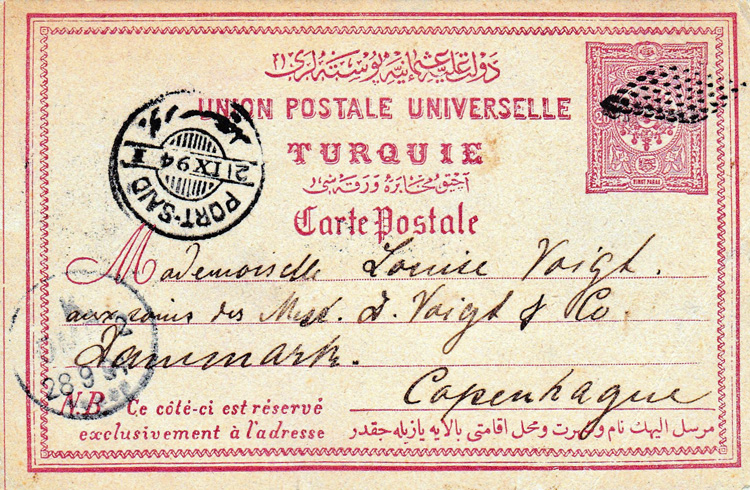 دولت عليه عثمانيه پوسته لری
UNION POSTALE UNIVERSELLE
TURQUIE
آچيق مخابره ورقه سی
Carte Postale
VINGT PARAS
PORT-SAID
21 IX 94
Mademoiselle Louise Voigt.
aux soins des Mess. D. Voigt & Co.
Danmark.
Copenhague
28 9
N.B. Ce côté-ci est réservé
exclusivement à l'adresse
مرسل اليهك نام و شهرت و محل اقامتی بالايه يازيله جقدر